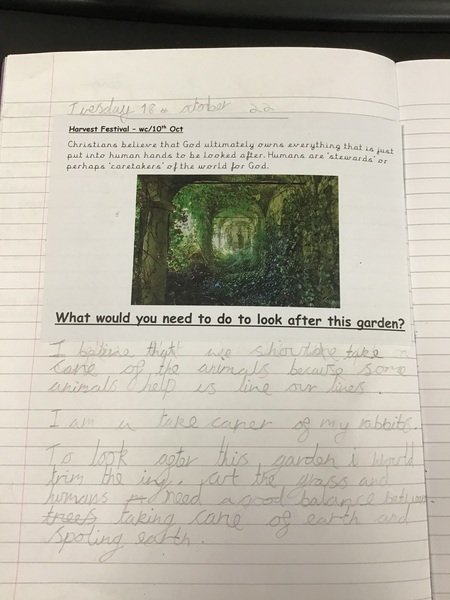 Tuesday 18th october 22
Harvest Festival – wc/10th Oct
Christians believe that God ultimately owns everything that is just
put into human hands to be looked after. Humans are 'stewards' or
perhaps 'caretakers' of the world for God.
What would you need to do to look after this garden?
I beleive that we should take
care of the animals because some
animals help us live our lives.
I am a take carer of my rabbits.
To look after this garden I would
trim the ivy, cut the grass and
humans need a good balance between
trees taking care of earth and
spoling earth.